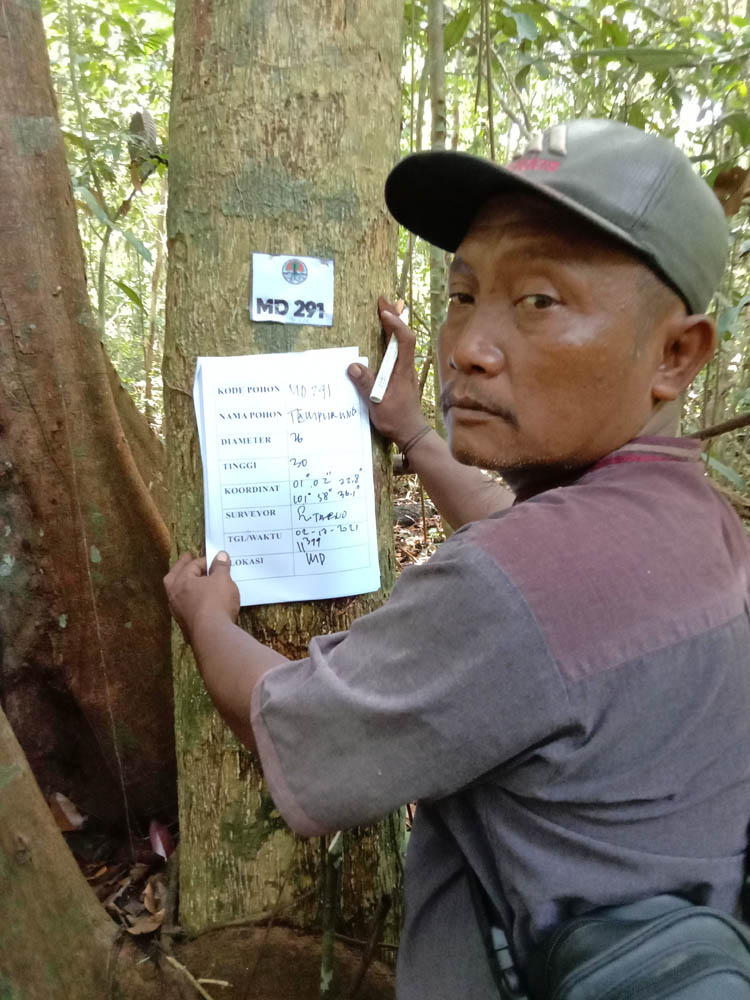 MD 291
KODE POHON MD 291
NAMA POHON TEMPURUNG
DIAMETER 36
TINGGI 30
KOORDINAT 01° 02" 22.8"
101° 58" 36.1"
SURVEYOR
TGL/WAKTU 02-12-2021
LOKASI MD